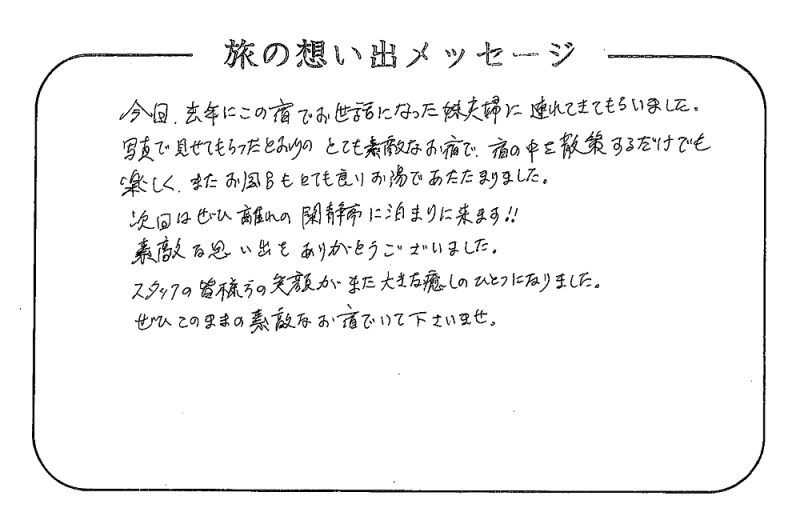 旅の想い出メッセージ
今回、去年にこの宿でお世話になった妹夫婦に連れてきてもらいました。
写真で見せてもらったとおりの とても素敵なお宿で、宿の中を散策するだけでも
楽しく、またお風呂もとても良いお湯であたたまりました。
次回はぜひ離れの閑静亭に泊まりに来ます!!
素敵な思い出をありがとうございました。
スタッフの皆様方の笑顔がまた大きな癒しのひとつになりました。
ぜひこのままの素敵なお宿でいて下さいませ。